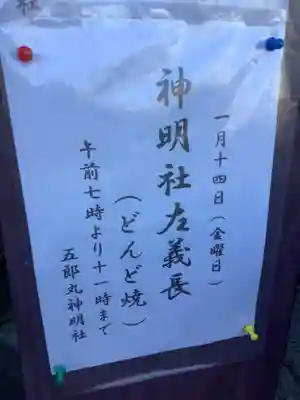 社
一月十四日(金曜日)
神明社左義長
(どんど焼)
午前七時より十一時まで
五郎丸神明社